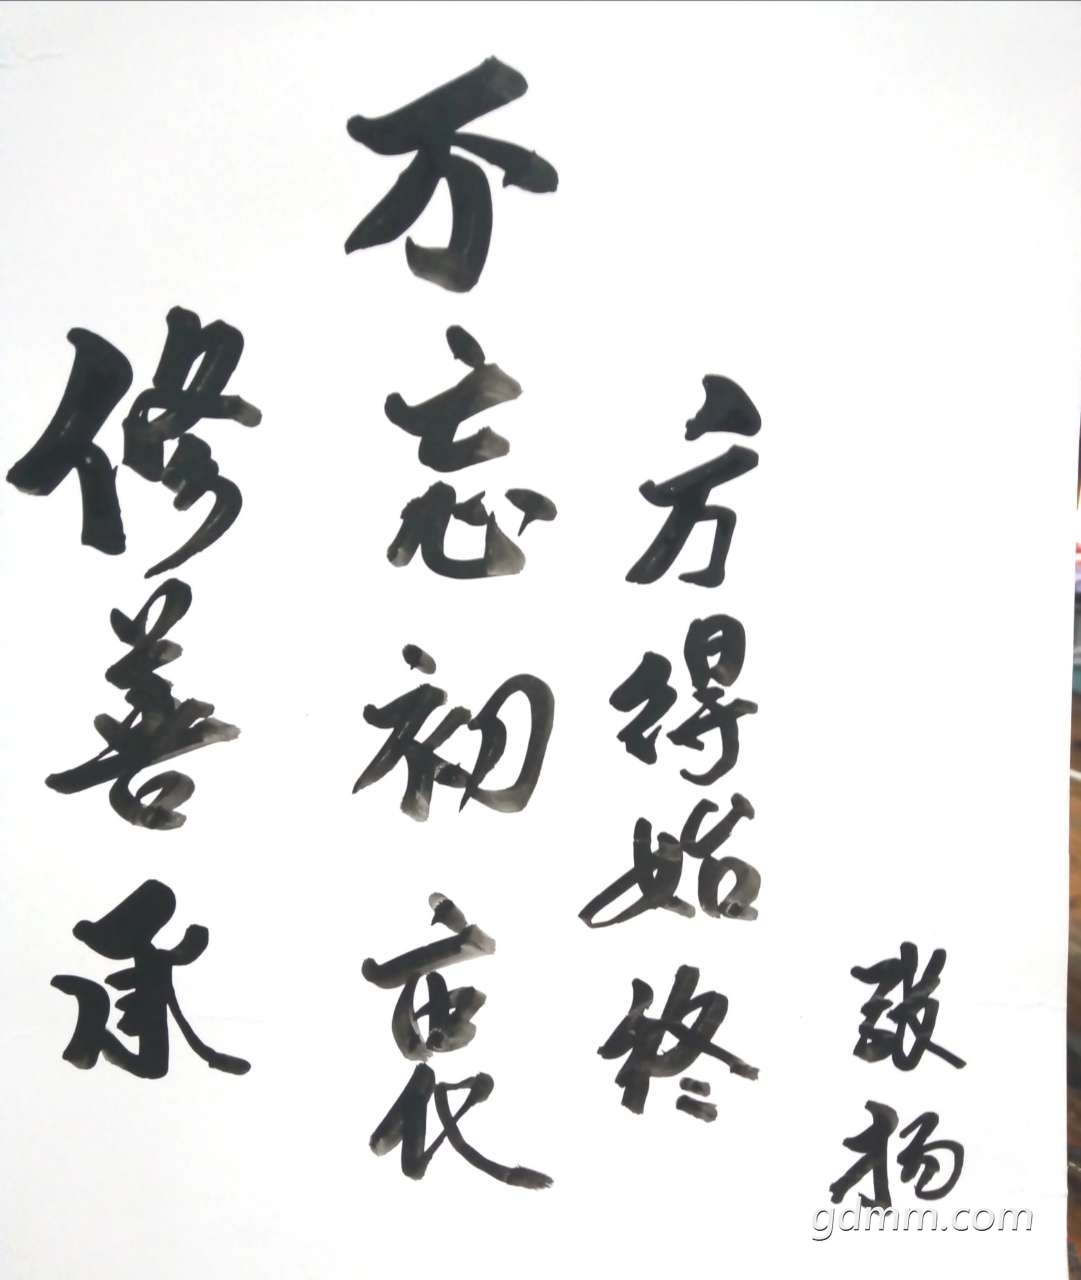 修善承
不忘初衷
方得始终
张扬
gdmm.com